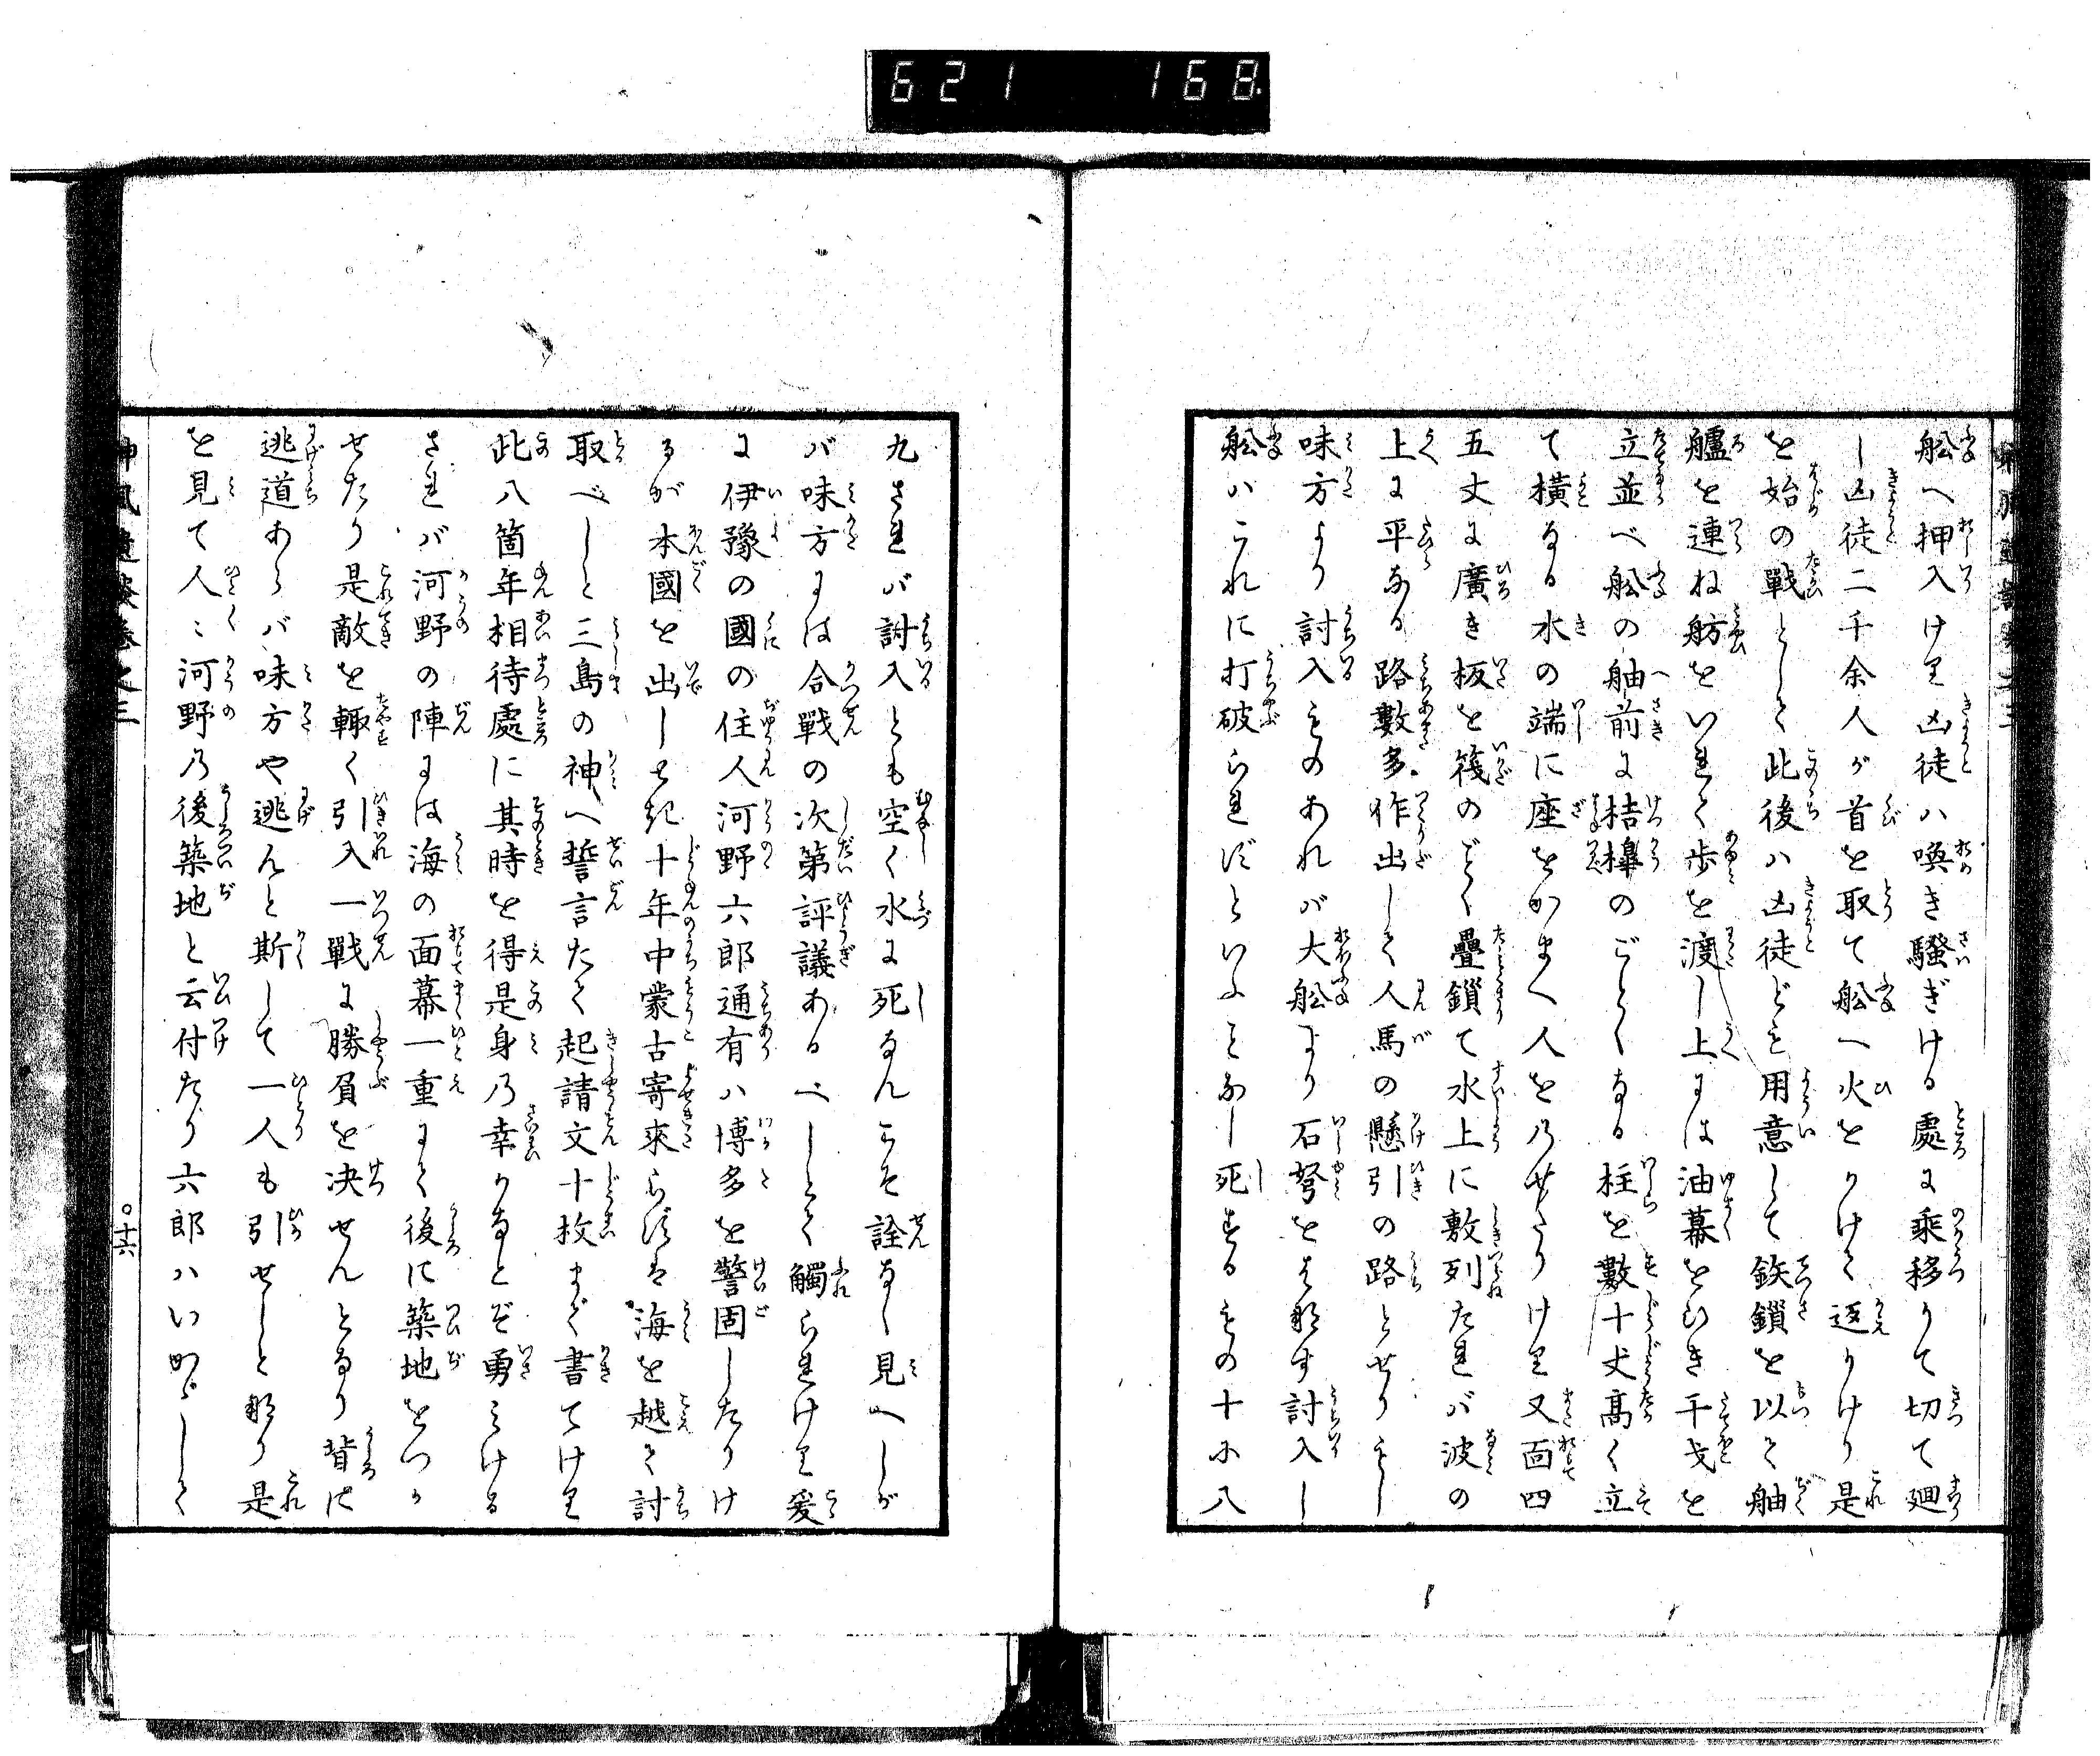 621 168
舩へ押入けり凶徒ハ喚き騒ぎける處に乘移りて切て廻
し凶徒二千余人が首を取て舩へ火をかけて返りけり是
を始の戰として此後ハ凶徒ども用意して鉄鎖を以て舳
艫を連ね舫をいれて歩を渡し上には油幕をひき干戈を
立並べ舩の舳前に桔槹のごとくなる柱を數十丈高く立
て横なる木の端に座をかまへ人を乃せたりけり又面四
五丈に廣き板を筏のごく疊鎖て水上に敷列たれバ波の
上に平なる路數多作出して人馬の懸引の路とせりもし
味方より討入ものあれバ大舩より石弩を はなす討入し
舩ハこれに打破られずといふことなし死するもの十に八
九されバ討入とも空く水に死なんこそ詮なく見へしが
バ味方には合戰の次第評議あるべしとて觸られけり爰
に伊豫の國の住人河野六郎通有ハ博多を警固したりけ
るが本國を出しせ起十年中蒙古寄來らずは海を越て討
取べしと三島の神へ誓言たて起請文十枚まで書てけり
此八箇年相待處に其時を得是身乃幸かなとぞ勇みける
されバ河野の陣には海の面幕一重にて後に築地をつか
せたり是敵を輙く引入一戰に勝負を決せんとなり背に
逃道あらバ味方や逃んと斯して一人も引せじと なり是
を見て人々河野乃後築地と云付たり六郎ハいかゞして
神風遺談卷之三
○十六